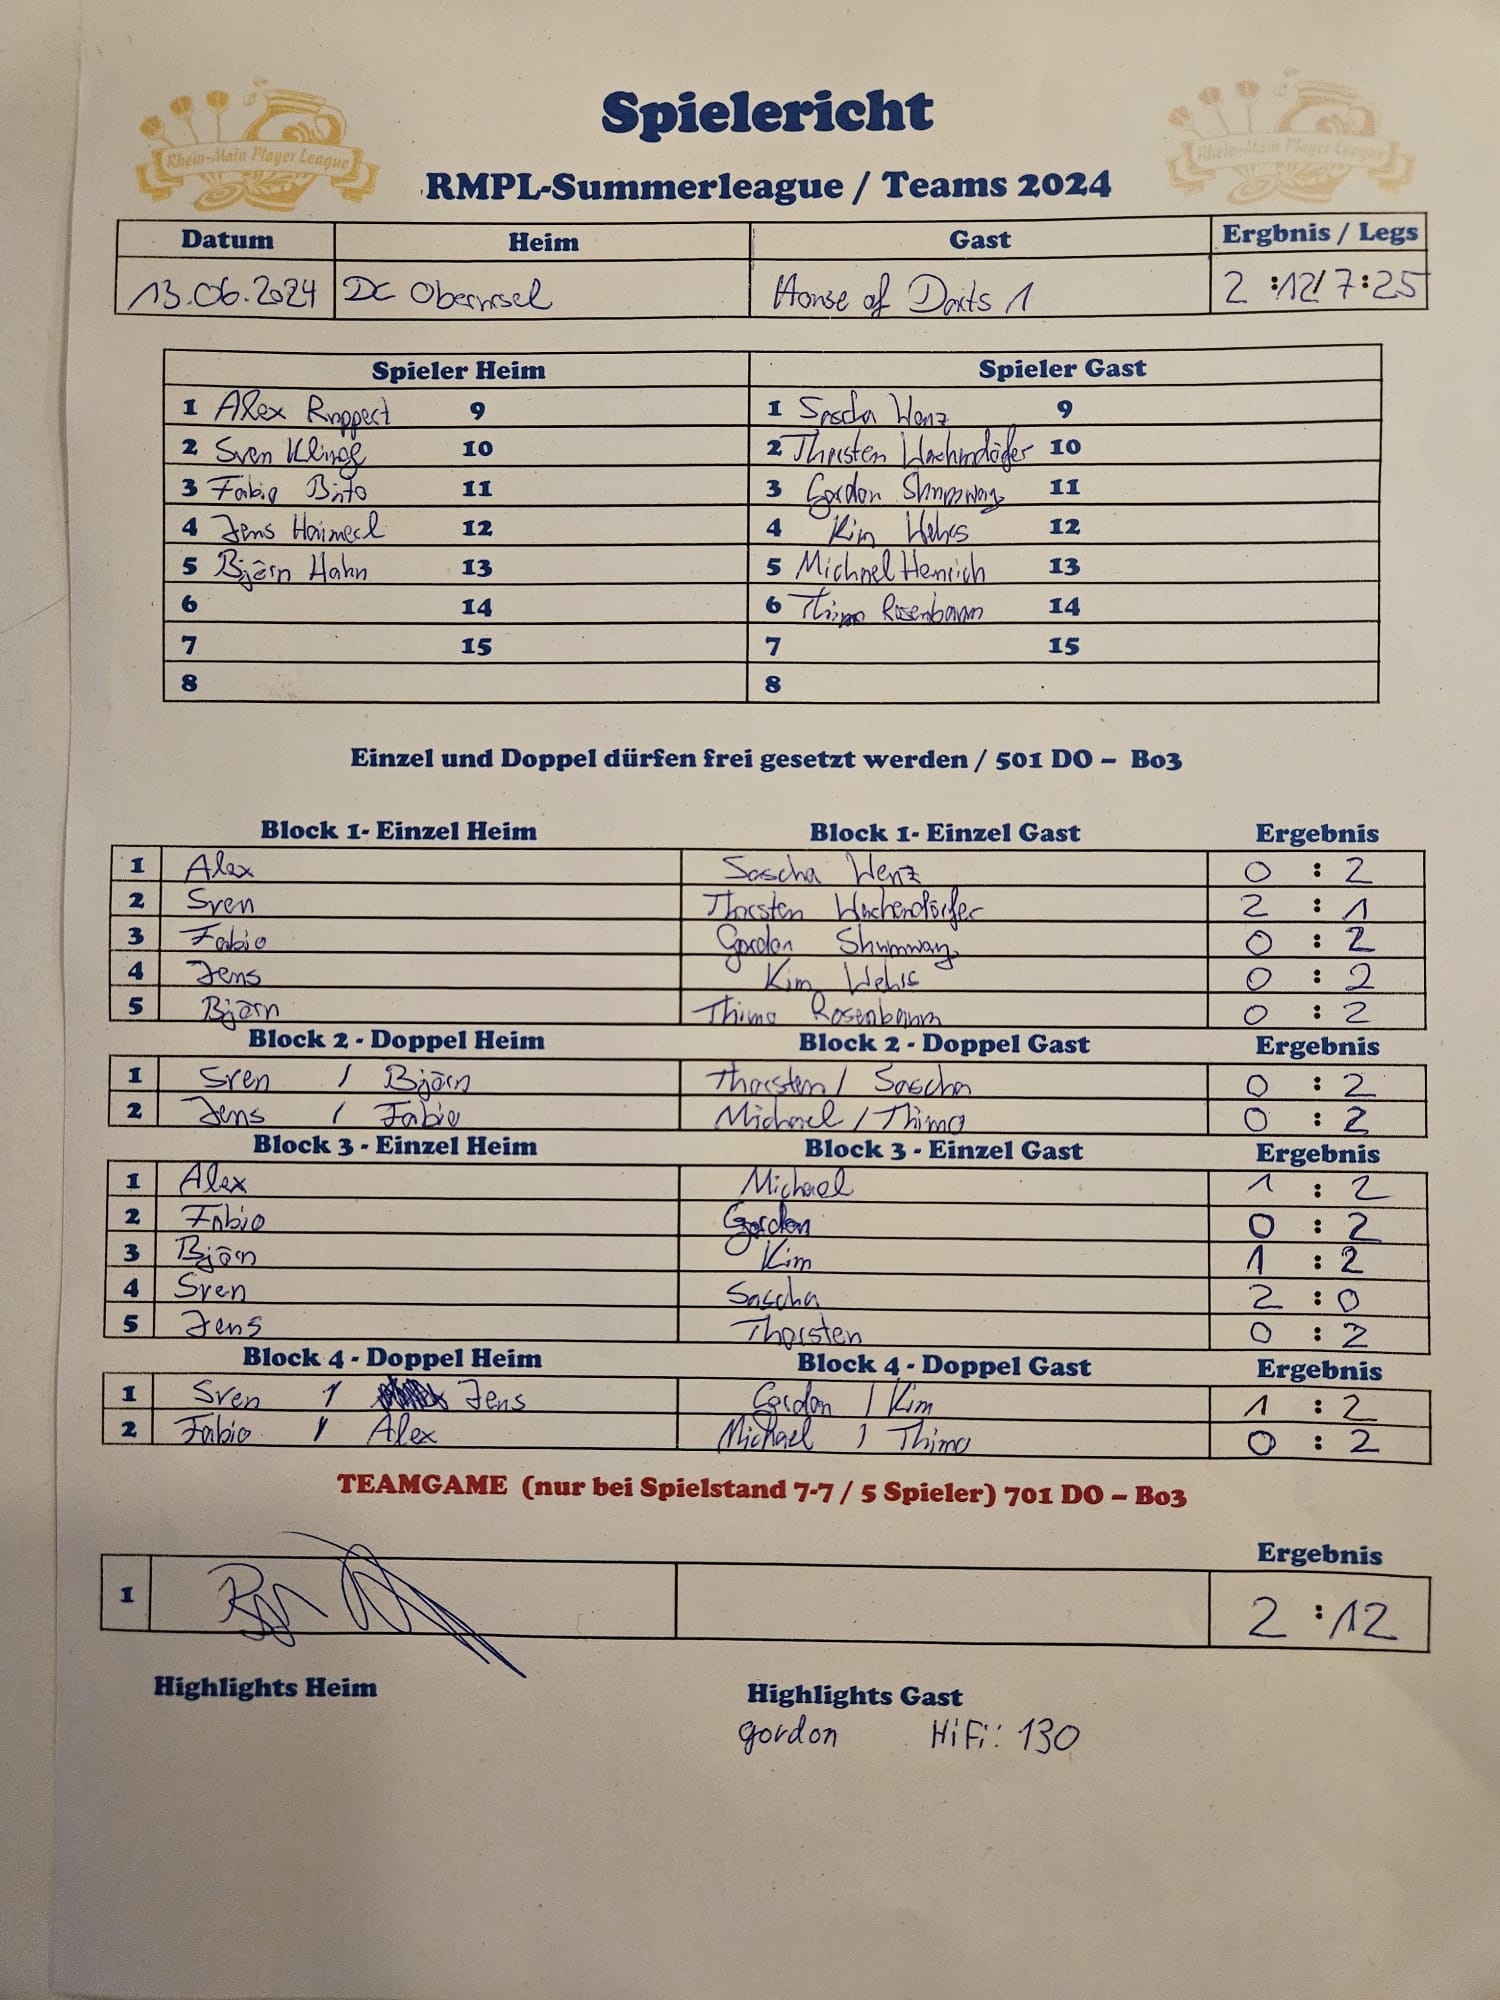 Rhein-Main Player League
Rhein-Main Player League
Spielericht
RMPL-Summerleague / Teams 2024
Datum Heim Gast Ergbnis / Legs
13.06.2024 DC Oberursel House of Darts 1 2 :12/7:25
Spieler Heim Spieler Gast
1 Alex Ruppert 9 1 Sascha Wenz 9
2 Sven Kling 10 2 Thorsten Wachendörfer 10
3 Fabio Brito 11 3 Gordon Shumway 11
4 Jens Haimerl 12 4 Kim Wehrs 12
5 Björn Hahn 13 5 Michael Henrich 13
6 14 6 Thimo Rosenbaum 14
7 15 7 15
8 8
Einzel und Doppel dürfen frei gesetzt werden / 501 DO – Bo3
Block 1- Einzel Heim Block 1- Einzel Gast Ergebnis
1 Alex Sascha Wenz 0 : 2
2 Sven Thorsten Wachendörfer 2 : 1
3 Fabio Gordon Shumway 0 : 2
4 Jens Kim Wehrs 0 : 2
5 Björn Thimo Rosenbaum 0 : 2
Block 2 - Doppel Heim Block 2 - Doppel Gast Ergebnis
1 Sven / Björn Thorsten / Sascha 0 : 2
2 Jens / Fabio Michael / Thimo 0 : 2
Block 3 - Einzel Heim Block 3 - Einzel Gast Ergebnis
1 Alex Michael 1 : 2
2 Fabio Gordon 0 : 2
3 Björn Kim 1 : 2
4 Sven Sascha 2 : 0
5 Jens Thorsten 0 : 2
Block 4 - Doppel Heim Block 4 - Doppel Gast Ergebnis
1 Sven / Jens Gordon / Kim 1 : 2
2 Fabio / Alex Michael / Thimo 0 : 2
TEAMGAME (nur bei Spielstand 7-7 / 5 Spieler) 701 DO – Bo3
Ergebnis
1 2 :12
Highlights Heim Highlights Gast
Gordon HiFi: 130